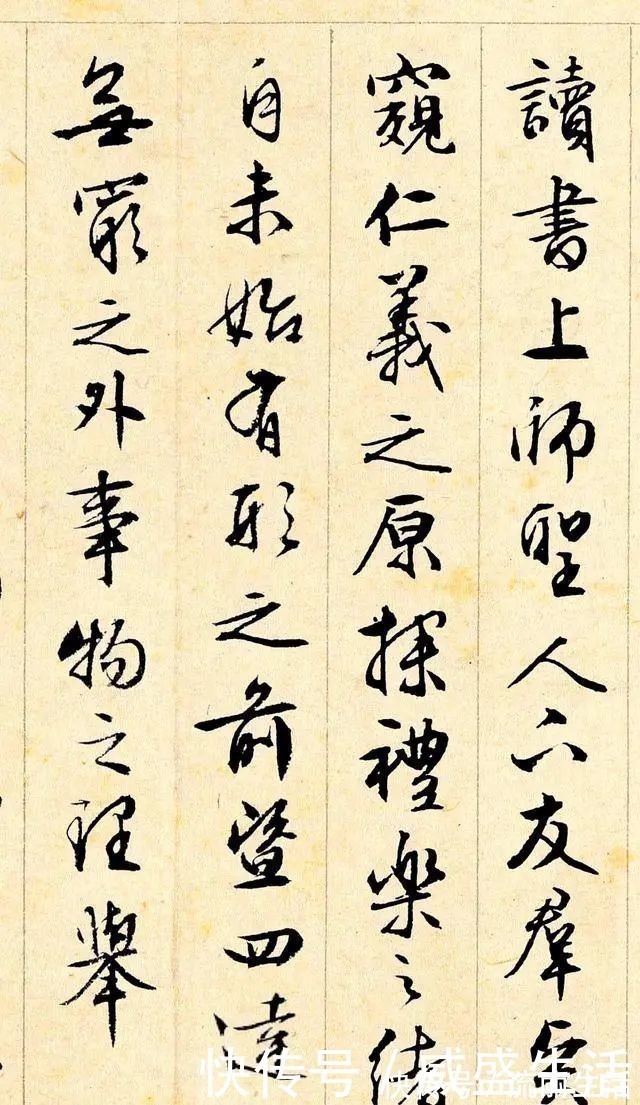 讀書上師聖人下友羣賢
窺仁義之原探禮樂之緒
自未始有形之前暨四達
無窮之外事物之理舉
快传号/威盛生活